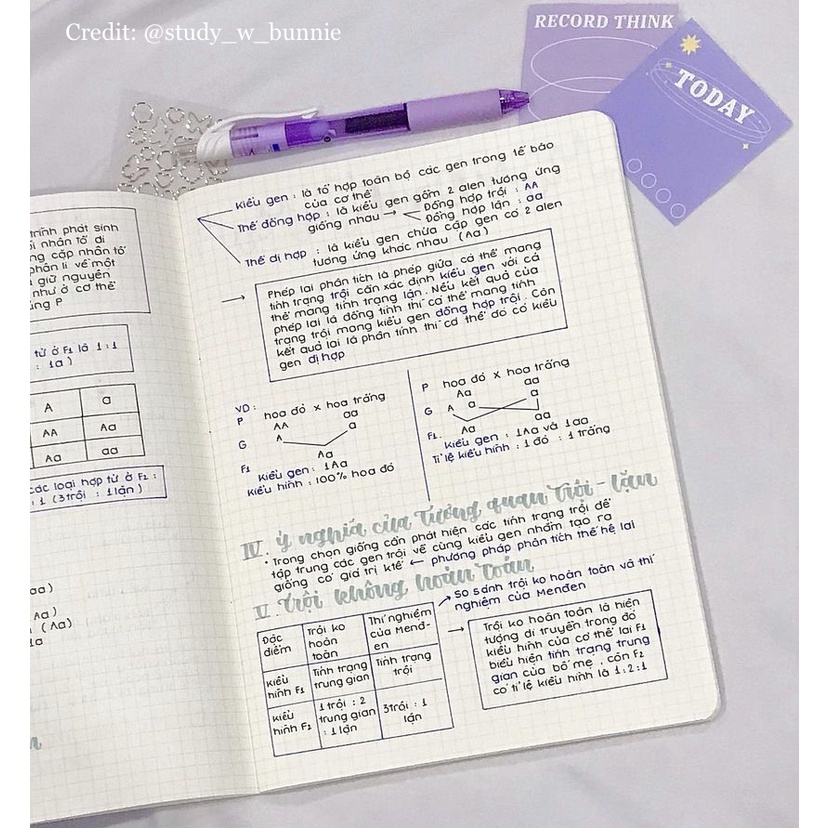 Credit: @study_w_bunnie
RECORD THINK
TODAY
trình phát sinh
nhân tố di
cặp nhân tố
phân li về một
giữ nguyên
như ở cơ thể
P
tử ở F1 là 1:1
: 1a)
A a
AA Aa
Aa aa
các loại hợp tử ở F2 :
: 1 (3 trội : 1 lặn)
aa)
Aa)
(Aa)
1a
Kiểu gen : là tổ hợp toàn bộ các gen trong tế bào
của cơ thể
Thể đồng hợp : là kiểu gen gồm 2 alen tương ứng
giống nhau → Đồng hợp trội : AA
Đồng hợp lặn : aa
Thể dị hợp : là kiểu gen chứa cặp gen có 2 alen
tương ứng khác nhau (Aa)
→ Phép lai phân tích là phép giữa cá thể mang
tính trạng trội cần xác định kiểu gen với cá
thể mang tính trạng lặn. Nếu kết quả của
phép lai là đồng tính thì cơ thể mang tính
trạng trội mang kiểu gen đồng hợp trội. Còn
kết quả lai là phân tính thì cơ thể đó có kiểu
gen dị hợp
VD :
P hoa đỏ x hoa trắng
AA aa
G A a
F1 Aa
Kiểu gen : 1Aa
Kiểu hình : 100% hoa đỏ
P hoa đỏ x hoa trắng
Aa aa
G A a a
F1. Aa aa
Kiểu gen : 1Aa và 1aa
Tỉ lệ kiểu hình : 1 đỏ : 1 trắng
IV. Ý nghĩa của tương quan trội - lặn
• Trong chọn giống cần phát hiện các tính trạng trội để
tập trung các gen trội về cùng kiểu gen nhằm tạo ra
giống có giá trị ktế ← phương pháp phân tích thế hệ lai
V. Trội không hoàn toàn
→ So sánh trội ko hoàn toàn và thí
nghiệm của Menđen
Đặc điểm Trội ko hoàn toàn Thí nghiệm của Menđ-en
Kiểu hình F1 Tính trạng trung gian Tính trạng trội
Kiểu hình F2 1 trội : 2 trung gian : 1 lặn 3 trội : 1 lặn
→ Trội ko hoàn toàn là hiện
tượng di truyền trong đó
kiểu hình của cơ thể lai F1
biểu hiện tính trạng trung
gian của bố mẹ, còn F2
có tỉ lệ kiểu hình là 1:2:1